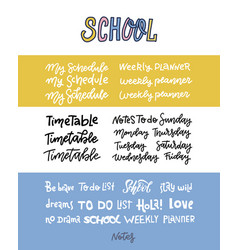 SCHOOL
My Schedule Weekly PLANNER
My Schedule weekly planner
My Schedule weekly planner
TimeTable Notes To do Sunday
Timetable Monday Thursday
Timetable Tuesday Saturday
Wednesday Friday
Be brave To do list School stay wild
dreams TO DO LIST HOLA! love
no drama SCHOOL WEEKLY PLANNER
Notes